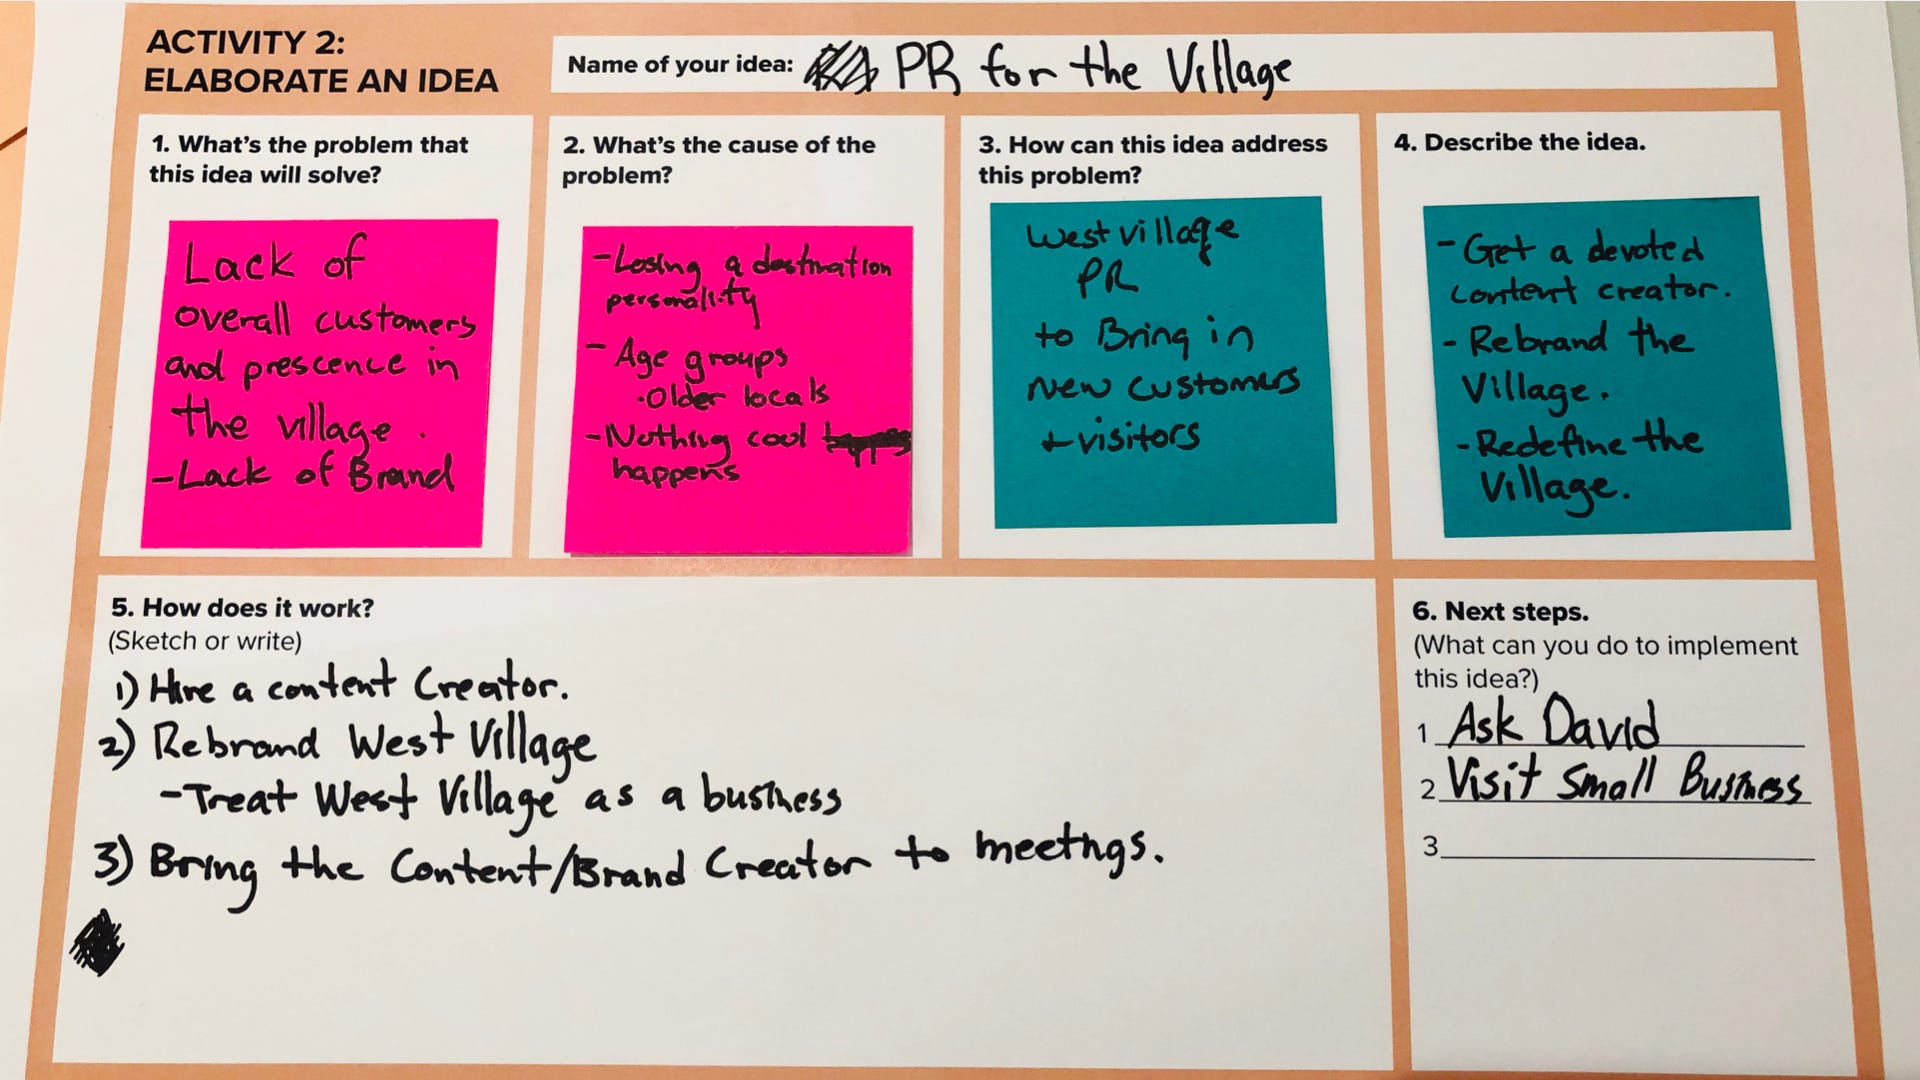 ACTIVITY 2:
ELABORATE AN IDEA
Name of your idea: PR for the Village
1. What's the problem that
this idea will solve?
Lack of
overall customers
and prescence in
the village.
-Lack of Brand
2. What's the cause of the
problem?
-Losing a destination
personality
- Age groups
·Older locals
-Nothing cool
happens
3. How can this idea address
this problem?
West village
PR
to Bring in
new customers
+ visitors
4. Describe the idea.
- Get a devoted
content creator.
- Rebrand the
Village.
- Redefine the
Village.
5. How does it work?
(Sketch or write)
1) Hire a content Creator.
2) Rebrand West Village
-Treat West Village as a business
3) Bring the Content/Brand Creator to meetings.
6. Next steps.
(What can you do to implement
this idea?)
1 Ask David
2 Visit Small Business
3